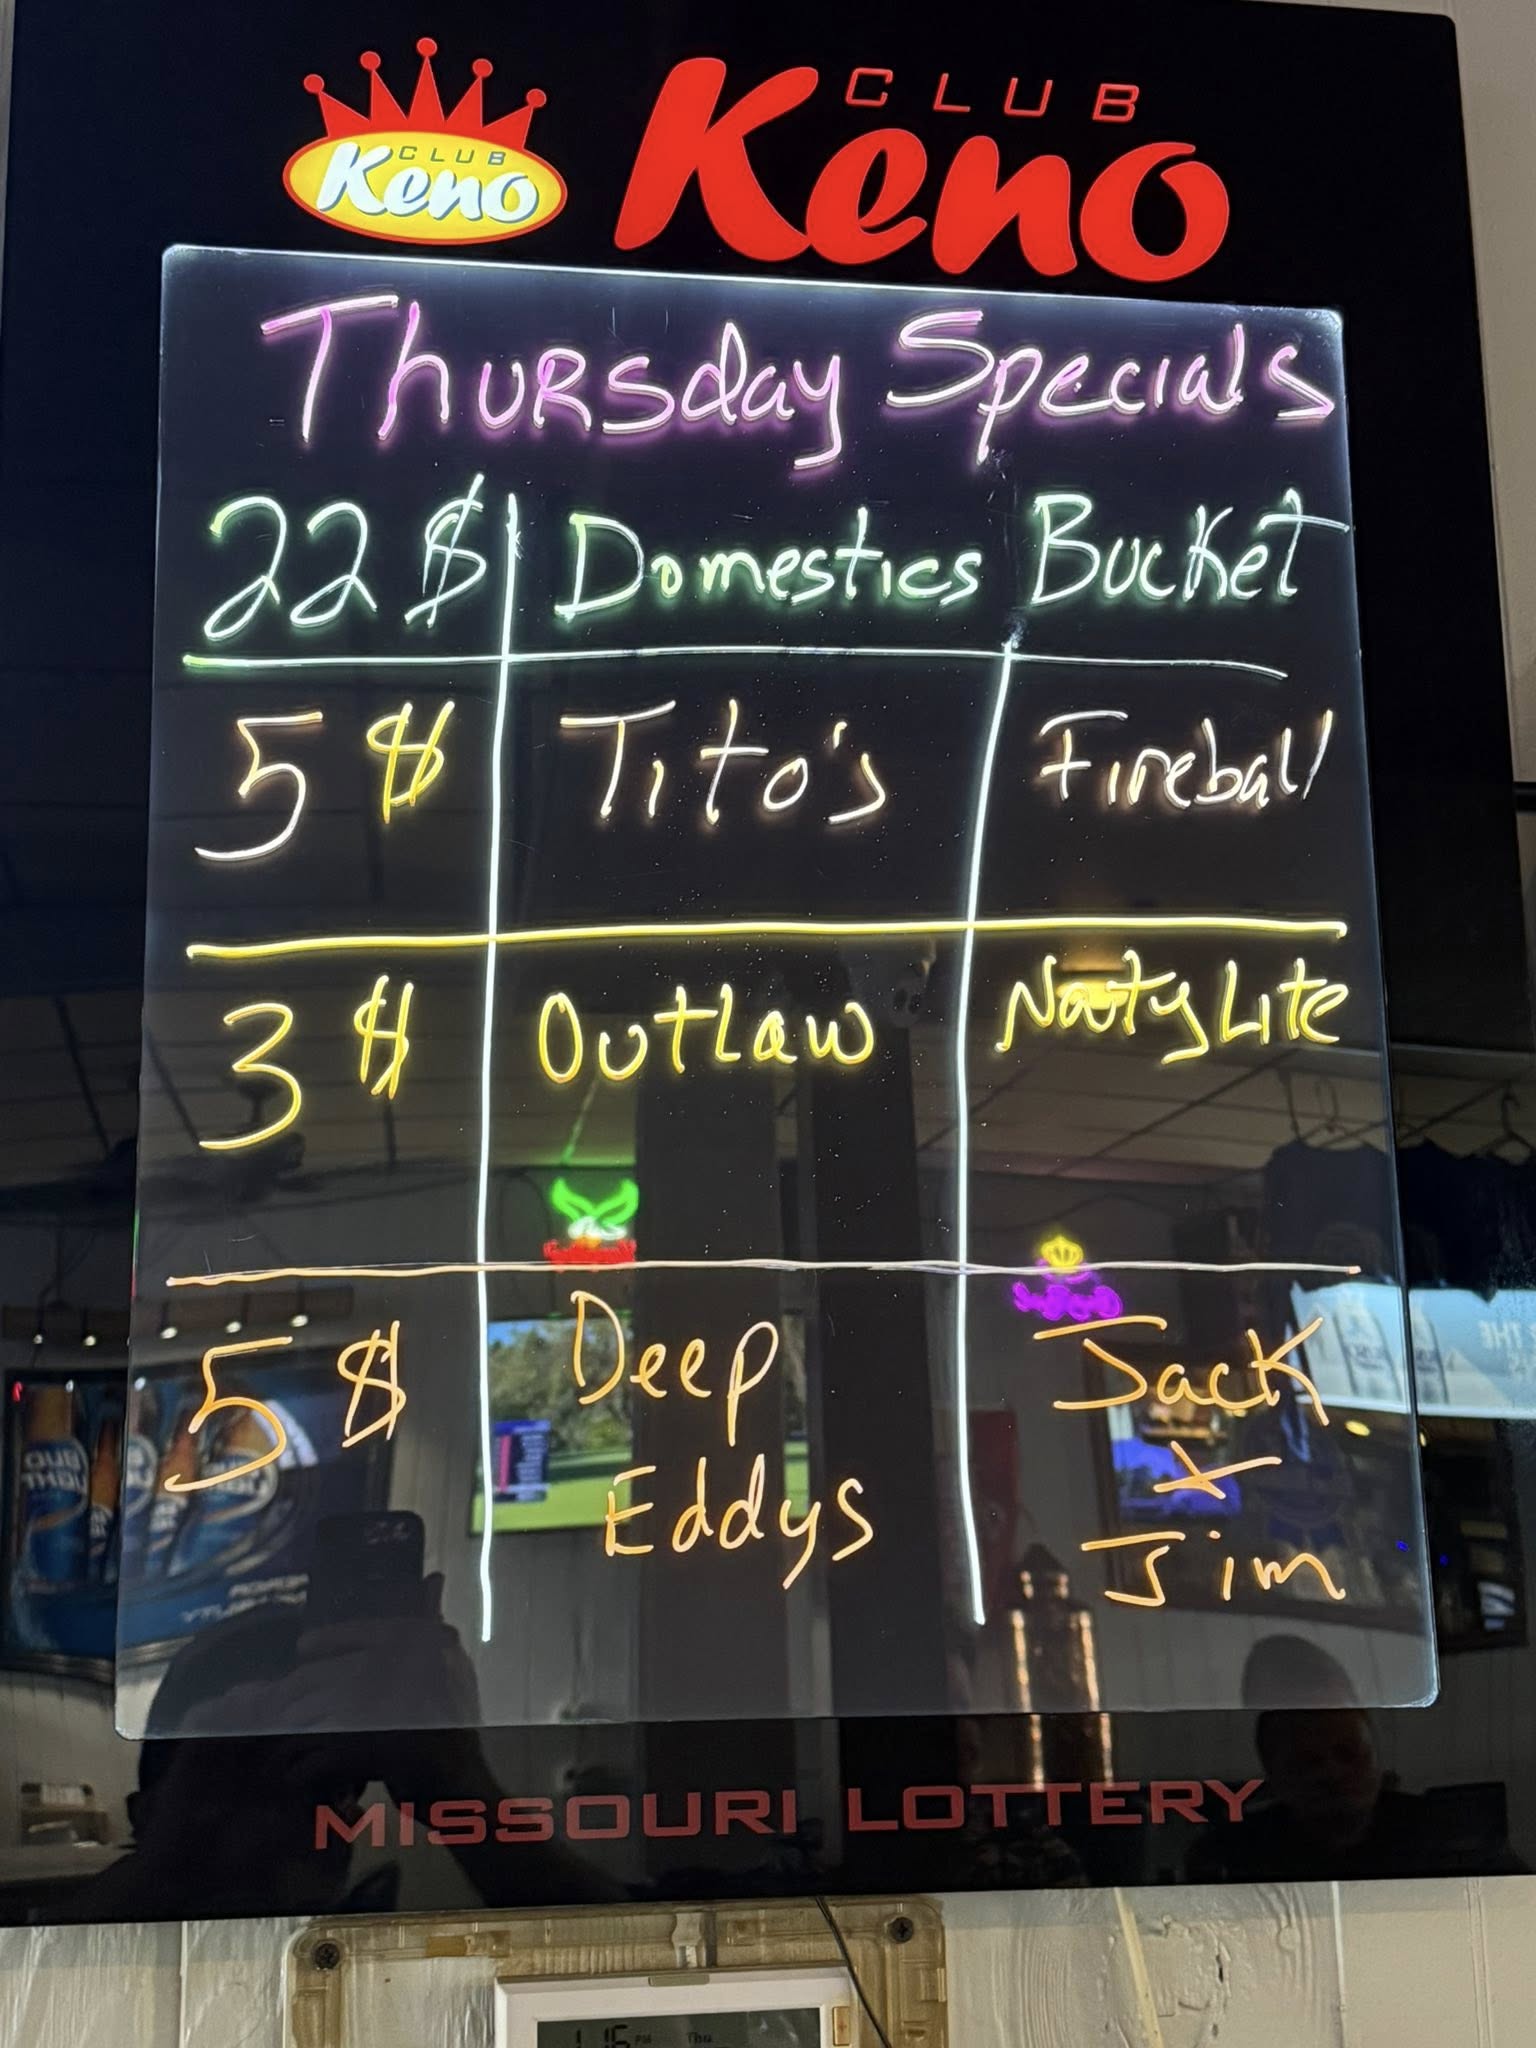 CLUB
Keno
CLUB
Keno
Thursday Specials
22 $ Domestics Bucket
5 $ Tito's Fireball
3 $ Outlaw Natty Lite
5 $ Deep Eddys Jack + Jim
MISSOURI LOTTERY